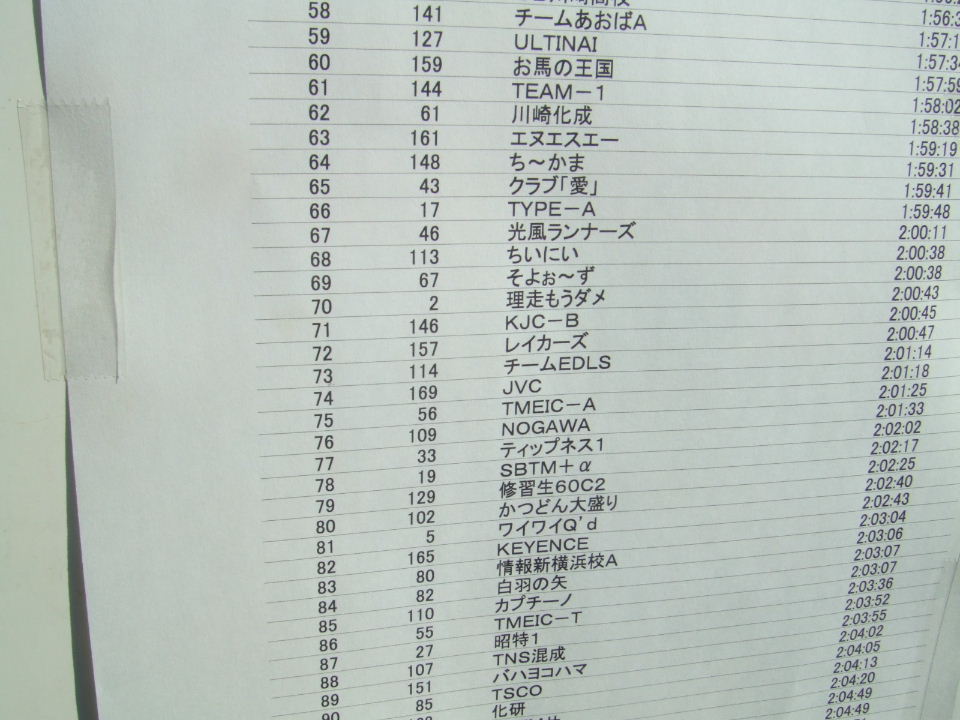 58 141 チームあおばA 1:56:3
59 127 ULTINAI 1:57:1
60 159 お馬の王国 1:57:34
61 144 TEAM－1 1:57:59
62 61 川崎化成 1:58:02
63 161 エヌエスエー 1:58:38
64 148 ち～かま 1:59:19
65 43 クラブ「愛」 1:59:31
66 17 TYPE－A 1:59:41
67 46 光風ランナーズ 1:59:48
68 113 ちいにい 2:00:11
69 67 そよぉ～ず 2:00:38
70 2 理走もうダメ 2:00:38
71 146 KJC－B 2:00:43
72 157 レイカーズ 2:00:45
73 114 チームEDLS 2:00:47
74 169 JVC 2:01:14
75 56 TMEIC－A 2:01:18
76 109 NOGAWA 2:01:25
77 33 ティップネス1 2:01:33
78 19 SBTM＋α 2:02:02
79 129 修習生60C2 2:02:17
80 102 かつどん大盛り 2:02:25
81 5 ワイワイQ'd 2:02:40
82 165 KEYENCE 2:02:43
83 80 情報新横浜校A 2:03:04
84 82 白羽の矢 2:03:06
85 110 カプチーノ 2:03:07
86 55 TMEIC－T 2:03:07
87 27 昭特1 2:03:36
88 107 TNS混成 2:03:52
89 151 バハヨコハマ 2:03:55
90 85 TSCO 2:04:02
化研 2:04:05
2:04:13
2:04:20
2:04:49
2:04:49